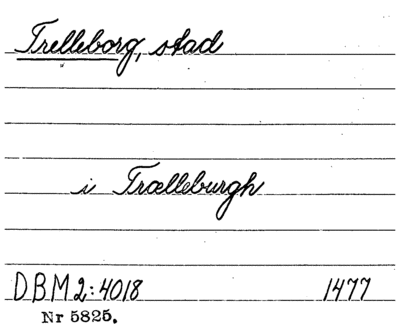 Trelleborg, stad
i Trælleburgh
DBM 2:4018 1477
Nr 5825.